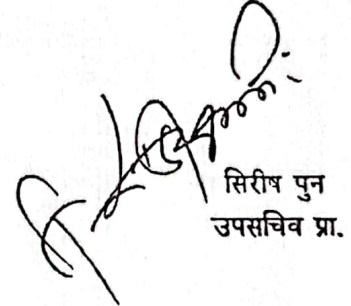 सिरीष पुन
उपसचिव प्रा.